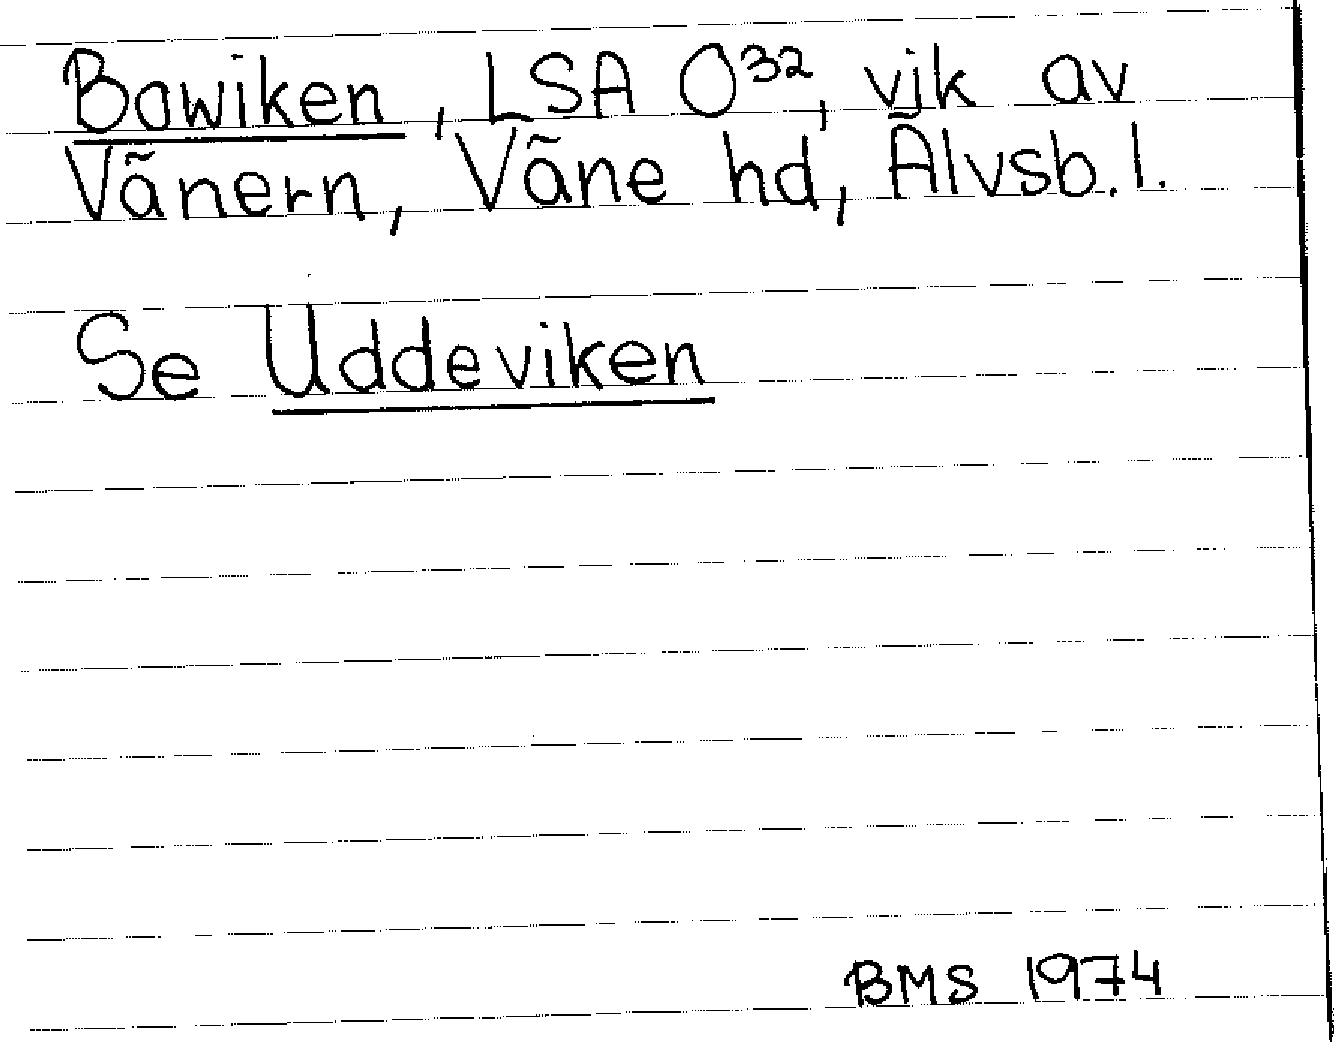 Bowiken, LSA O³², vik av
Vänern, Väne hd, Älvsb. l.
Se Uddeviken
BMS 1974